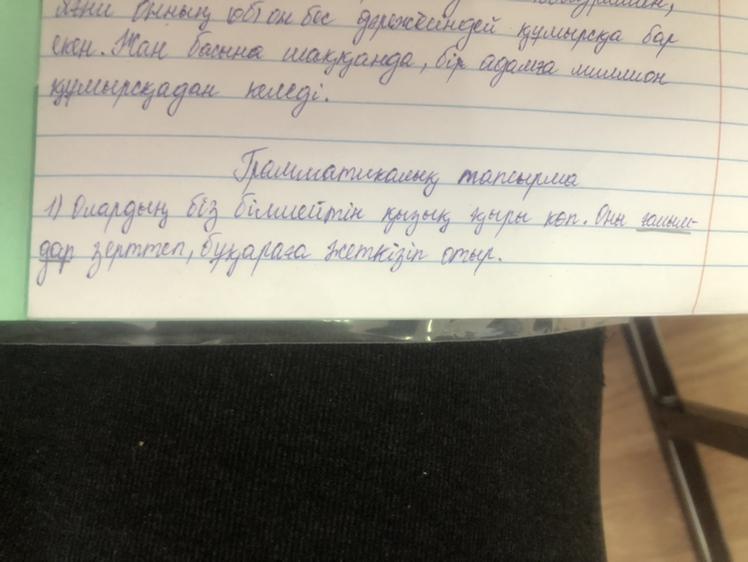 онның он бес дәрежесіндей құмырсқа бар
екен. Жан басына шаққанда, бір адамға миллион
құмырсқадан келеді.
Грамматикалық тапсырма
1) Олардың біз білмейтін қызық қыры көп. Оны ғалым-
дар зерттеп, бұқараға жеткізіп отыр.